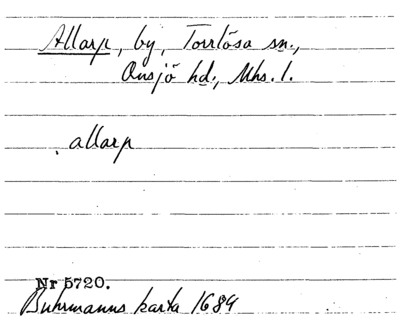 Allarp, by, Torrlösa sn.,
Onsjö hd., Mhs. l.
allarp
Nr 5720.
Buhrmanns karta 1684